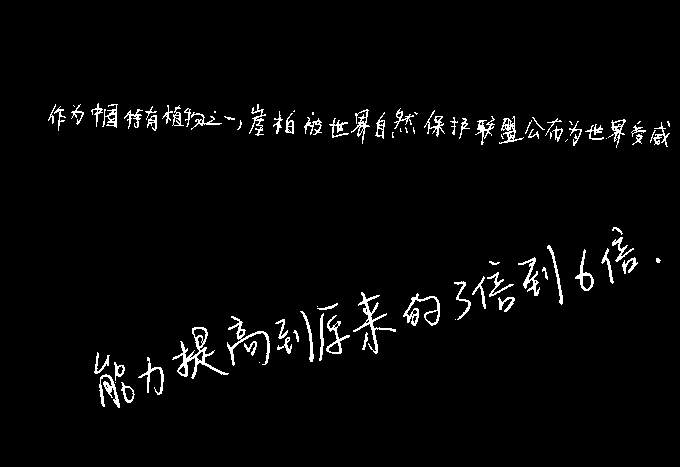 作为中国特有植物之一,崖柏被世界自然保护联盟公布为世界受威
能力提高到原来的3倍到6倍.